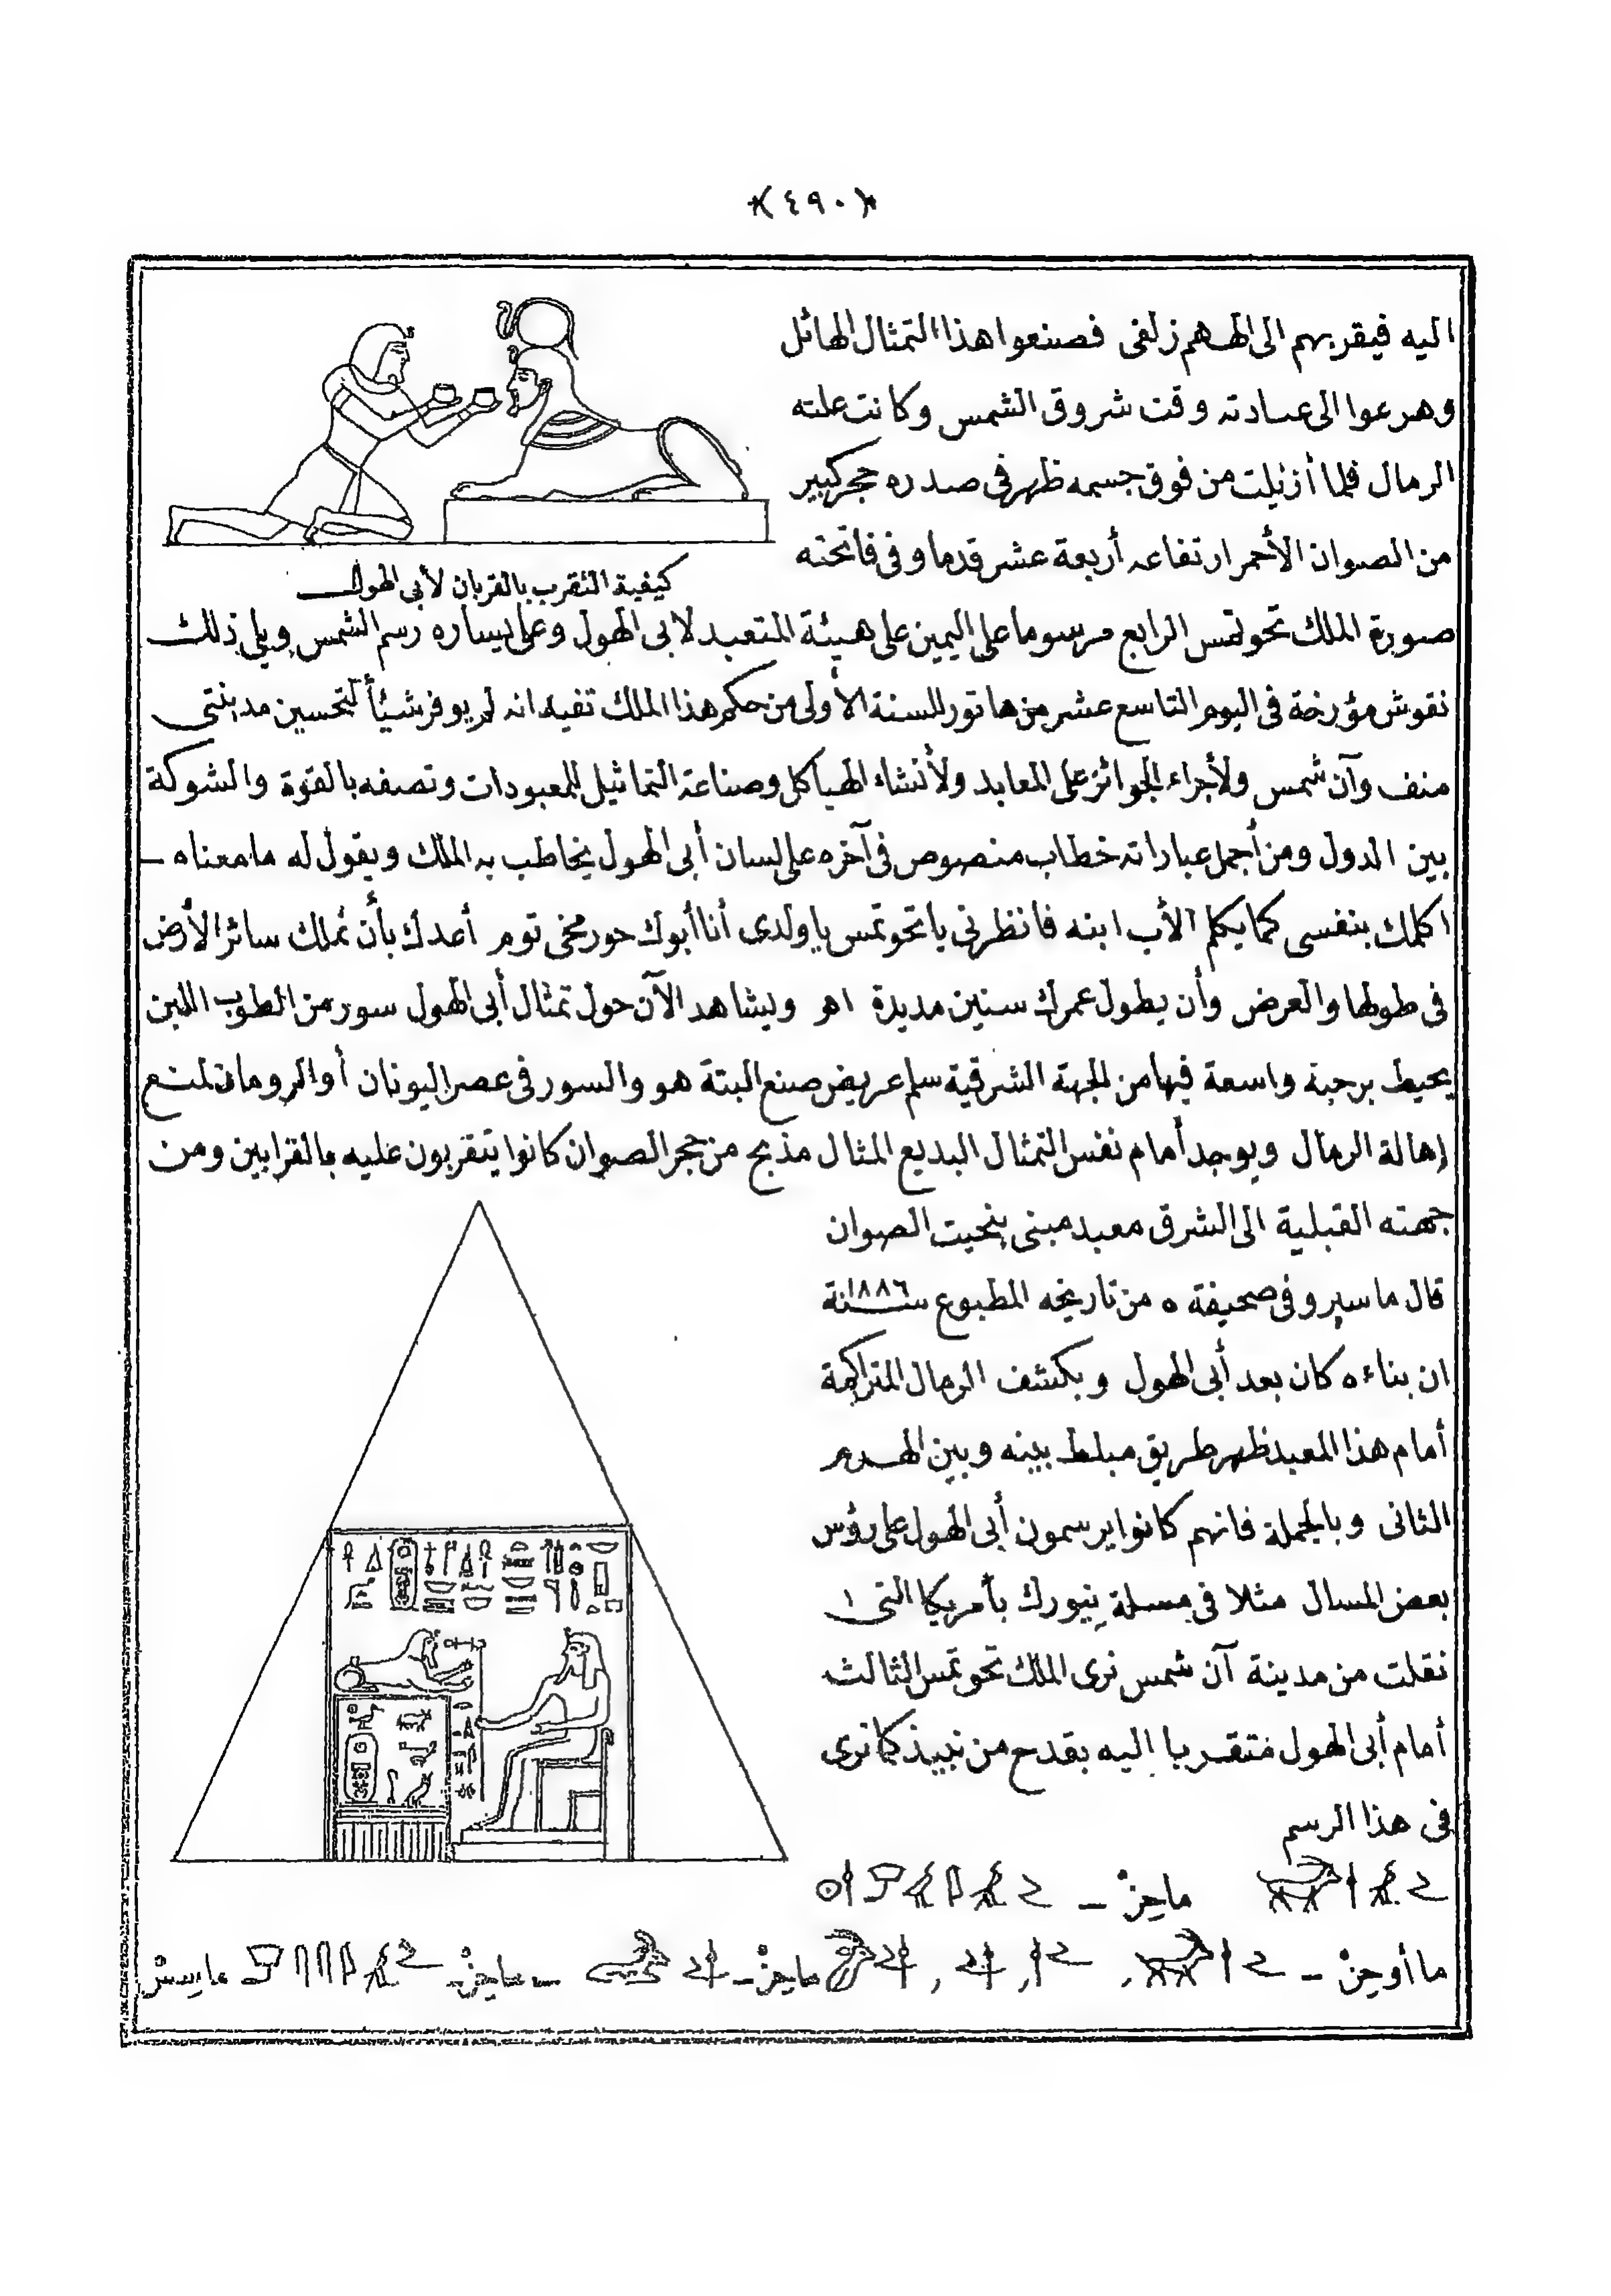 (٤٩٠)
اليه فيقربهم الى الههم زلفى فصنعوا هذا التمثال الهائل
وهرعوا الى عبادته وقت شروق الشمس وكانت علته
الرمال فلما أزيلت من فوق جسمه ظهر فى صدره حجر كبير
من الصوان الأحمر ارتفاعه أربعة عشر قدما وفى فاتحته
كيفية التقرب بالقربان لأبى الهول
صورة الملك تحوتمس الرابع مرسوما على اليمين على هيئة المتعبد لابى الهول وعلى يساره رسم الشمس ويلى ذلك
نقوش مؤرخة فى اليوم التاسع عشر من هاتور للسنة الأولى من حكم هذا الملك تفيد انه لم يوفر شيئاً لتحسين مدينتى
منف وآن شمس ولأجراء الجوائز على المعابد ولأنشاء الهياكل وصناعة التماثيل للمعبودات وتصفه بالقوة والشوكة
بين الدول ومن أجمل عباراته خطاب منصوص فى آخره على لسان أبى الهول يخاطب به الملك ويقول له مامعناه –
اكلمك بنفسى كما يكلم الأب ابنه فانظرنى يا تحوتمس يا ولدى أنا أبوك حور مخى توم أعدك بأن تملك سائر الأرض
فى طولها والعرض وأن يطول عمرك سنين مديدة اهـ ويشاهد الآن حول تمثال أبى الهول سور من الطوب اللبن
يحيط برحبة واسعة فيها من الجهة الشرقية سلم عريض صنع البتة هو والسور فى عصر اليونان أو الرومان لمنع
إهالة الرمال ويوجد أمام نفس التمثال البديع المثال مذبح من حجر الصوان كانوا يتقربون عليه بالقرابين ومن
جهته القبلية الى الشرق معبد مبنى بنحيت الصوان
قال ماسبرو فى صحيفة ٥ من تاريخه المطبوع سنة ١٨٨٦
ان بناءه كان بعد أبى الهول وبكشف الرمال المتراكمة
أمام هذا المعبد ظهر طريق مبلط بينه وبين الهرم
الثانى وبالجملة فانهم كانوا يرسمون أبى الهول على رؤس
بعض المسال مثلا فى مسلة نيورك بأمريكا التى
نقلت من مدينة آن شمس نرى الملك تحوتمس الثالث
أمام أبى الهول متقربا اليه بقدح من نبيذ كما ترى
فى هذا الرسم
ماحِزْ –
ماأوحِزْ – ماحِزْ – ماحِزْ – مايسْ